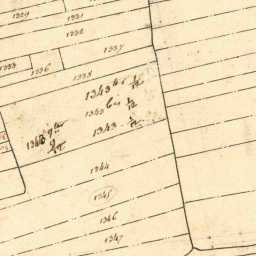 1329
1331
1332
1337
1333
1336
1338
1343 ter 1/2
1343 bis 1/2
1343 1/2
1343
1344
1345
1346
1347